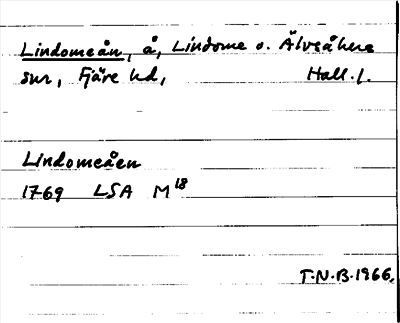 Lindomeån, å, Lindome o. Älvsåkers
snr, Fjäre hd, Hall. l.
Lindomeåen
1769 LSA M18
T.N.B. 1966.